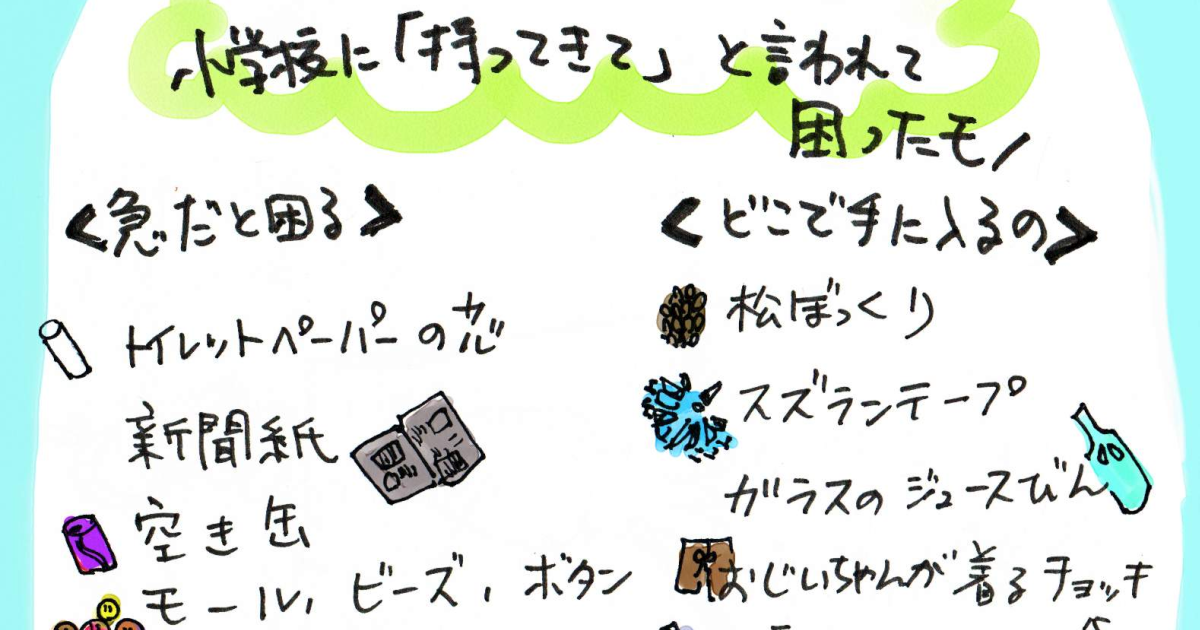 小学校に「持ってきて」と言われて
困ったモノ
<急だと困る>
トイレットペーパーの芯
新聞紙
空き缶
モール、ビーズ、ボタン
<どこで手に入るの>
松ぼっくり
スズランテープ
ガラスのジュースびん
おじいちゃんが着るチョッキ